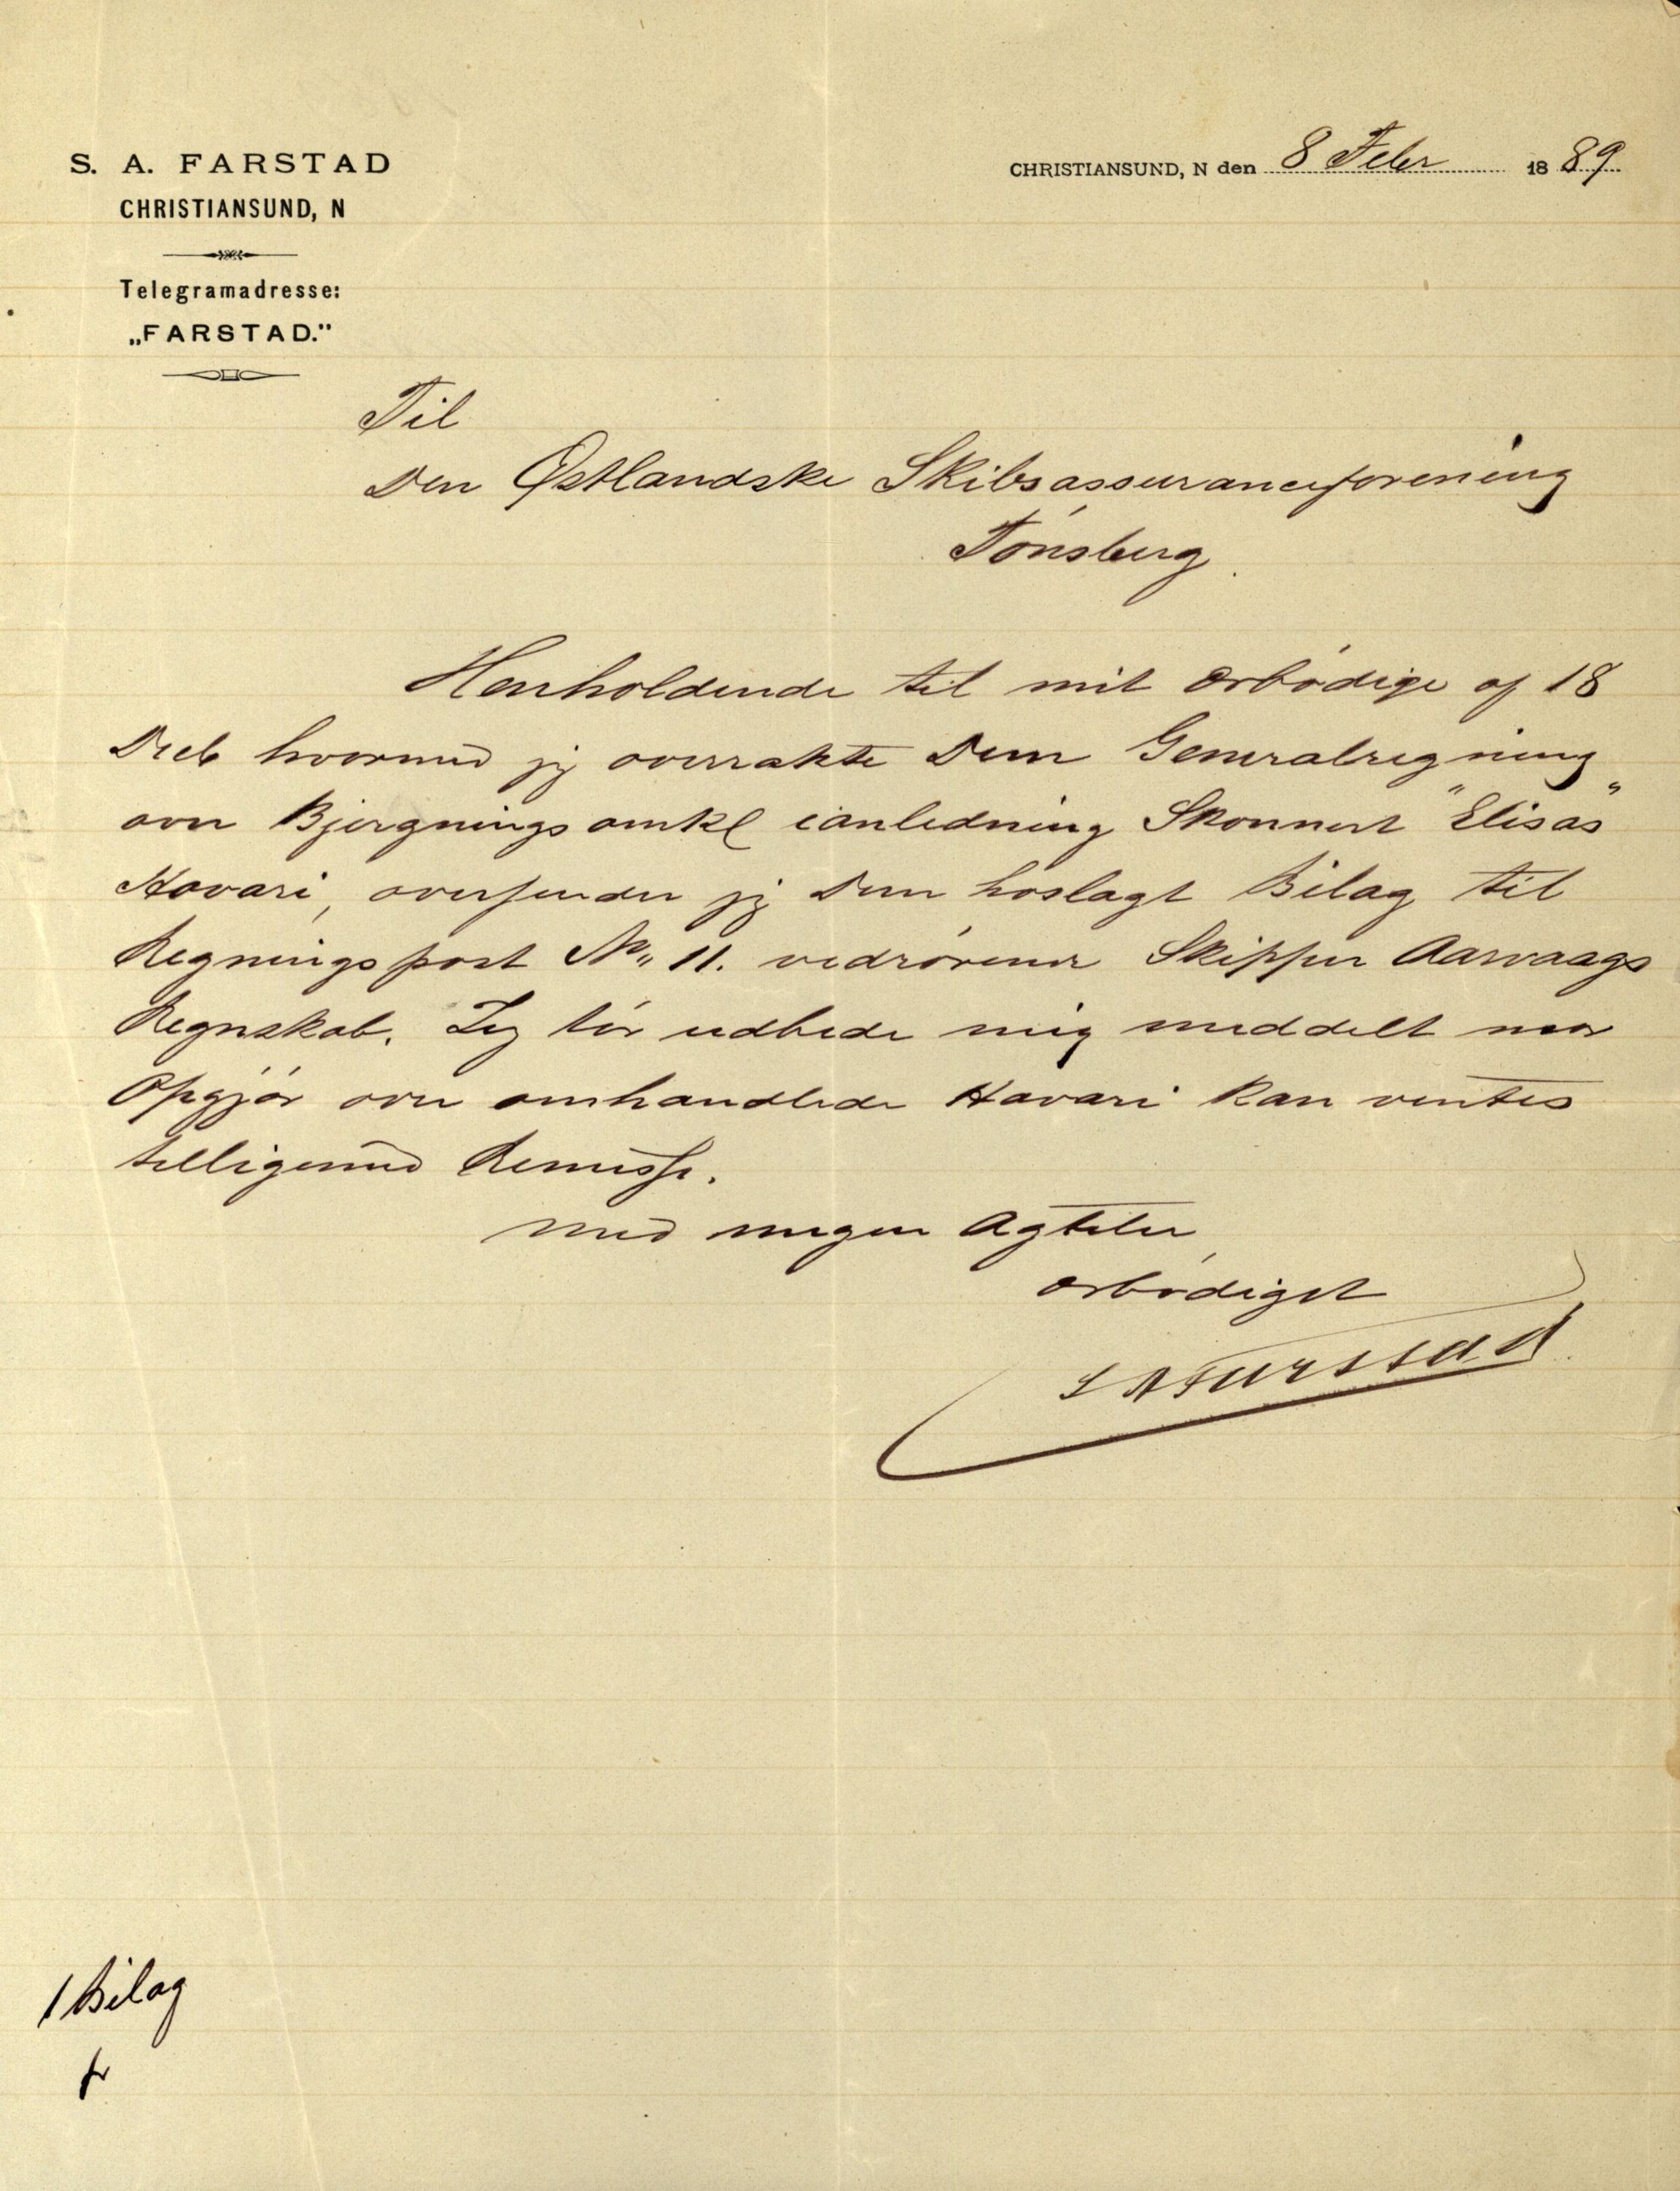 S. A. FARSTAD
CHRISTIANSUND, N
Telegramadresse:
„FARSTAD."
CHRISTIANSUND, N den 8 Febr 1889
Til
Den Østlandske Skibsassuranceforening
Tónsberg.
Henholdende til mit ærbódige af 18
Decb hvormed jeg overrakte Dem Generalregning
over Bjergningsomkl ianledning Skonnert "Elisas"
Havari, oversender jeg Dem hoslagt Bilag til
Regningspost No 11. vedrórende Skipper Aarvaags
Regnskab. Jeg tór udbede mig meddelt naar
Opgjór over omhandlede Havari kan ventes
tilligemed Remisse.
Med megen Agtelse
ærbódigst
S A Farstad
1 Bilag